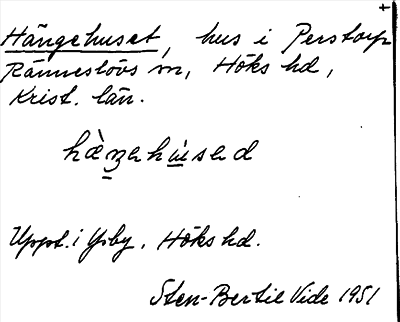 +
Hängehuset, hus i Perstorp
Ränneslövs sn, Höks hd,
Krist. län.
hæ̀ŋəhu̇səd
Uppt. i Ysby, Höks hd.
Sten-Bertil Vide 1951